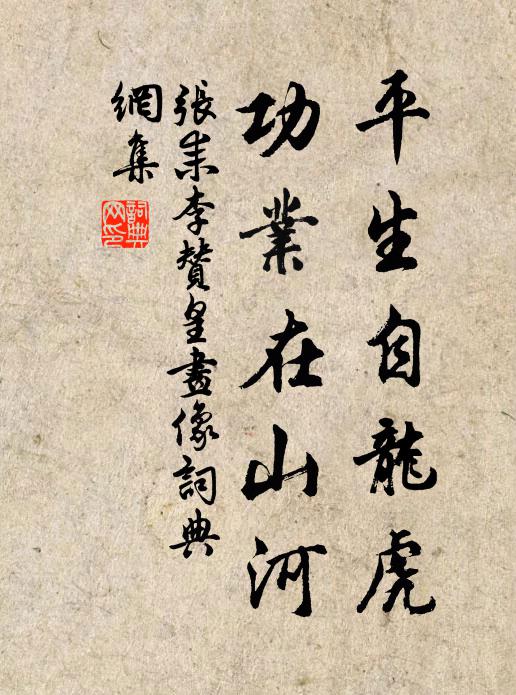 平生自龍虎
功業在山河
張耒李贊皇畫像詞典
網集
詞典
网印